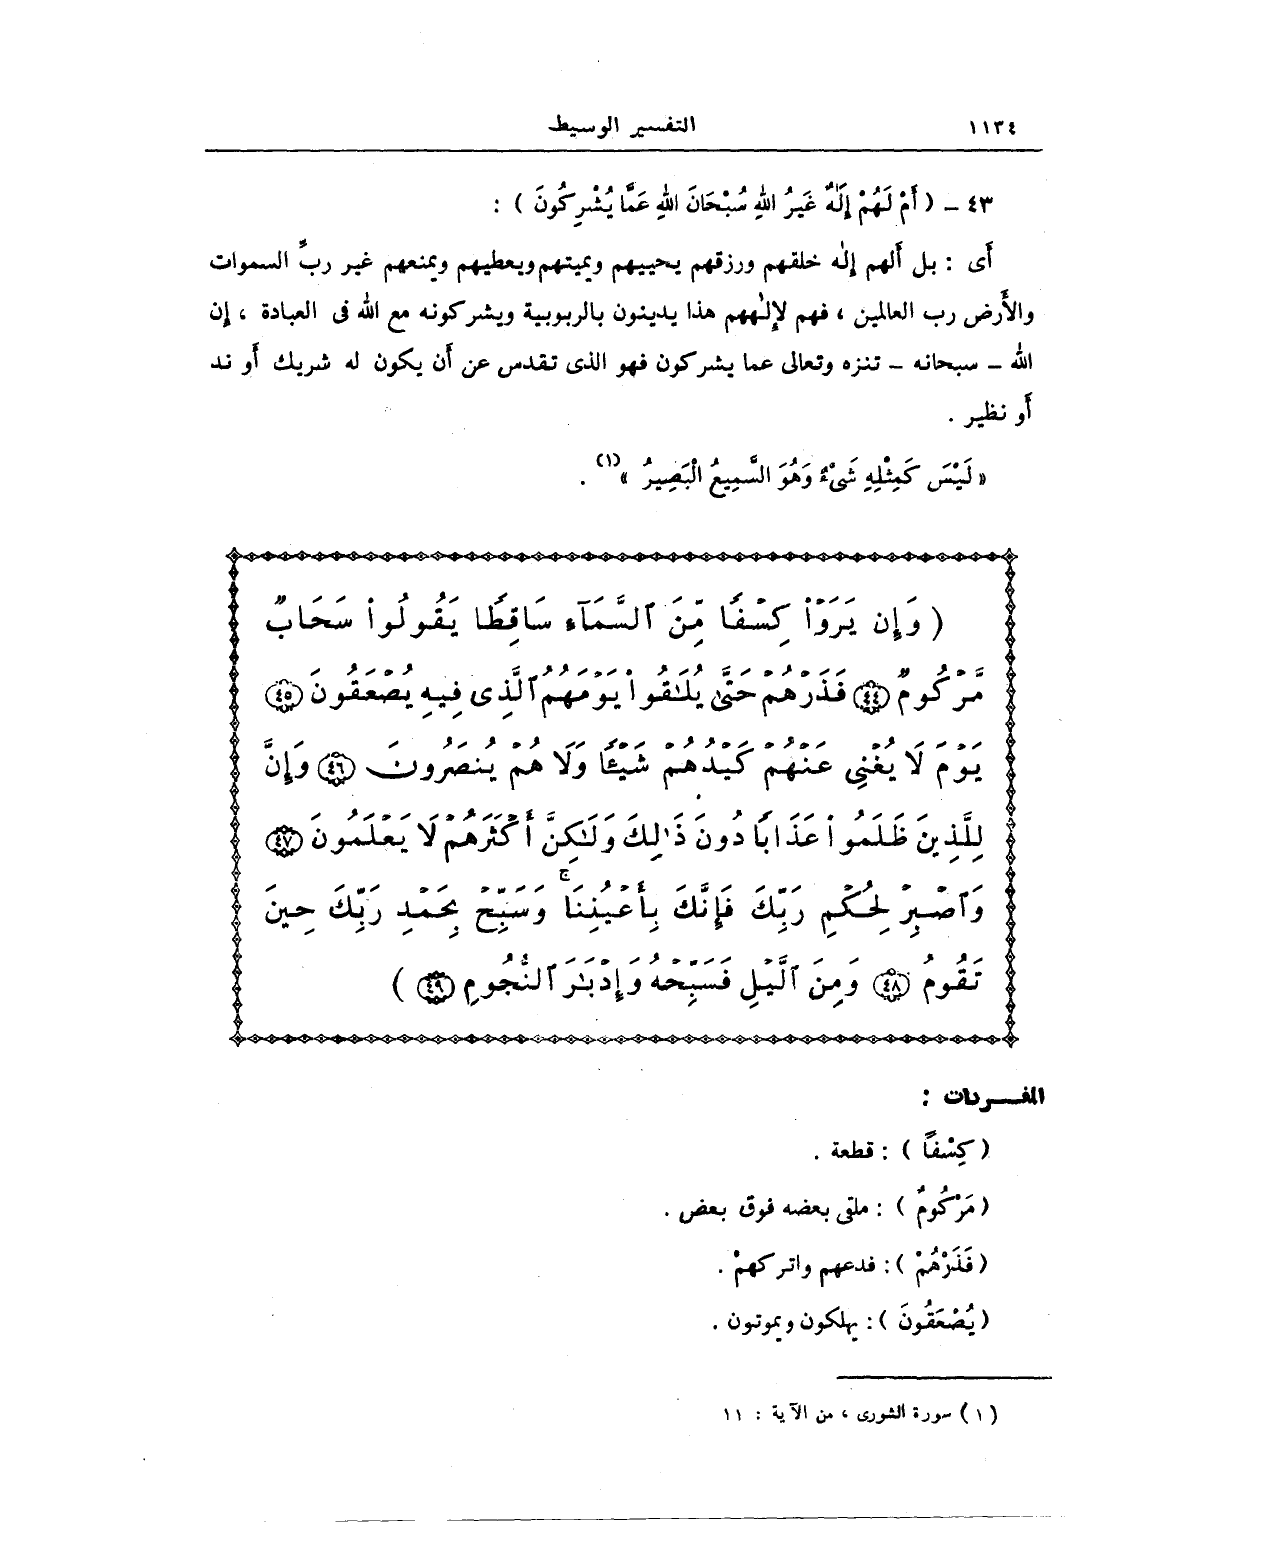 ١١٣٤ التفسير الوسيط
٤٣ – ( أَمْ لَهُمْ إِلَٰهٌ غَيْرُ اللهِ سُبْحَانَ اللهِ عَمَّا يُشْرِكُونَ ) :
أَى : بل أَلهم إِلٰه خلقهم ورزقهم يحييهم ويميتهم ويعطيهم ويمنعهم غير ربِّ السموات
والأَرض رب العالمين ، فهم لإِلٰههم هذا يدينون بالربوبية ويشركونه مع الله فى العبادة ، إِن
الله – سبحانه – تنزه وتعالى عما يشركون فهو الذى تقدس عن أَن يكون له شريك أَو ند
أَو نظير .
« لَيْسَ كَمِثْلِهِ شَىْءٌ وَهُوَ السَّمِيعُ الْبَصِيرُ »(١) .
( وَإِن يَرَوْاْ كِسْفًا مِّنَ ٱلسَّمَآءِ سَاقِطًا يَقُولُواْ سَحَابٌ
مَّرْكُومٌ ٤٤ فَذَرْهُمْ حَتَّىٰ يُلَٰقُواْ يَوْمَهُمُ ٱلَّذِى فِيهِ يُصْعَقُونَ ٤٥
يَوْمَ لَا يُغْنِى عَنْهُمْ كَيْدُهُمْ شَيْـًٔا وَلَا هُمْ يُنصَرُونَ ٤٦ وَإِنَّ
لِلَّذِينَ ظَلَمُواْ عَذَابًا دُونَ ذَٰلِكَ وَلَٰكِنَّ أَكْثَرَهُمْ لَا يَعْلَمُونَ ٤٧
وَٱصْبِرْ لِحُكْمِ رَبِّكَ فَإِنَّكَ بِأَعْيُنِنَا ۖ وَسَبِّحْ بِحَمْدِ رَبِّكَ حِينَ
تَقُومُ ٤٨ وَمِنَ ٱلَّيْلِ فَسَبِّحْهُ وَإِدْبَٰرَ ٱلنُّجُومِ ٤٩ )
المفـــردات :
( كِسْفًا ) : قطعة .
( مَرْكُومٌ ) : ملقى بعضه فوق بعض .
( فَذَرْهُمْ ) : فدعهم واتركهمْ .
( يُصْعَقُونَ ) : يهلكون ويموتون .
( ١ ) سورة الشورى ، من الآية : ١١